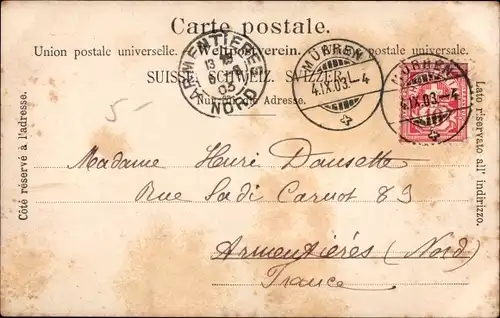 Carte postale.
Union postale universelle. – Weltpostverein. – Unione postale universale.
SUISSE. SCHWEIZ. SVIZZERA.
Nur für die Adresse.
Côté réservé à l'adresse.
Lato riservato all' indirizzo.
ARMENTIERES
03
NORD
MÜRREN
4.IX.03.–4
MÜRREN
4.IX.03.–4
5-
Madame Henri Dansette
Rue Sadi Carnot 89
Armentières (Nord)
France